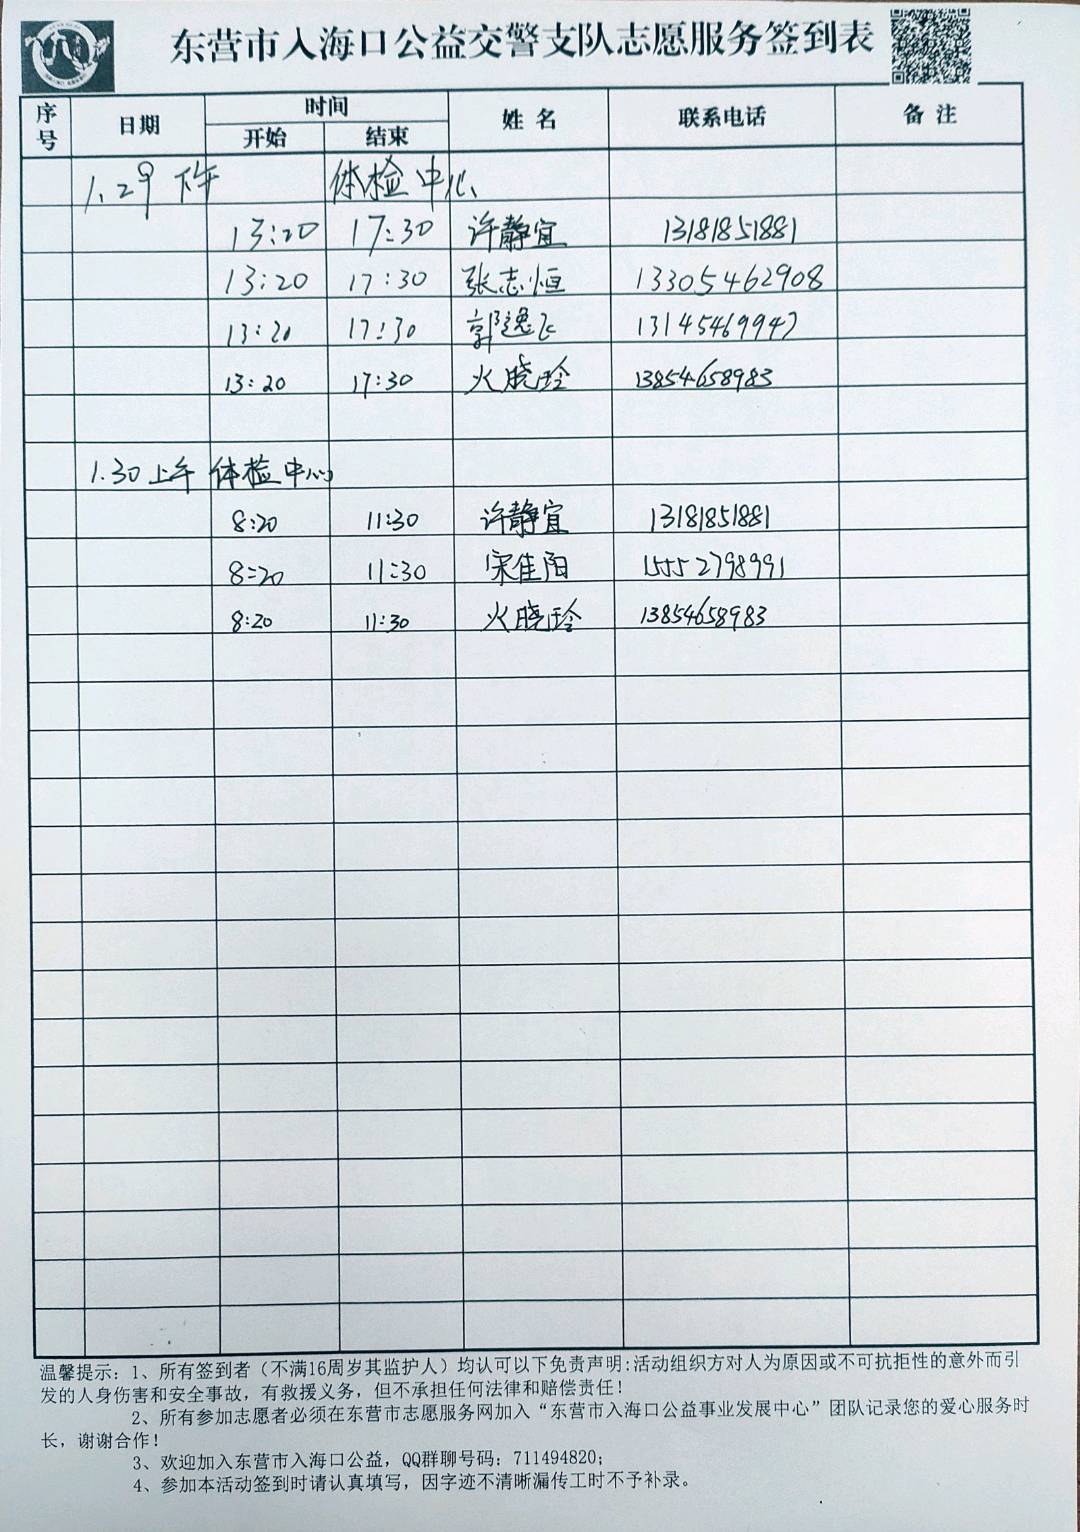 东营市入海口公益交警支队志愿服务签到表
序号 日期 时间 姓 名 联系电话 备 注
开始 结束
1.29 下午 体检中心
13:20 17:30 许静宜 13181851881
13:20 17:30 张志恒 13305462908
13:20 17:30 郭逸飞 13145469947
13:20 17:30 火晓玲 13854658983
1.30 上午 体检中心
8:20 11:30 许静宜 13181851881
8:20 11:30 宋佳阳 15552798991
8:20 11:30 火晓玲 13854658983
温馨提示：1、所有签到者（不满16周岁其监护人）均认可以下免责声明:活动组织方对人为原因或不可抗拒性的意外而引
发的人身伤害和安全事故，有救援义务，但不承担任何法律和赔偿责任！
2、所有参加志愿者必须在东营市志愿服务网加入“东营市入海口公益事业发展中心”团队记录您的爱心服务时
长，谢谢合作！
3、欢迎加入东营市入海口公益，QQ群聊号码：711494820；
4、参加本活动签到时请认真填写，因字迹不清晰漏传工时不予补录。